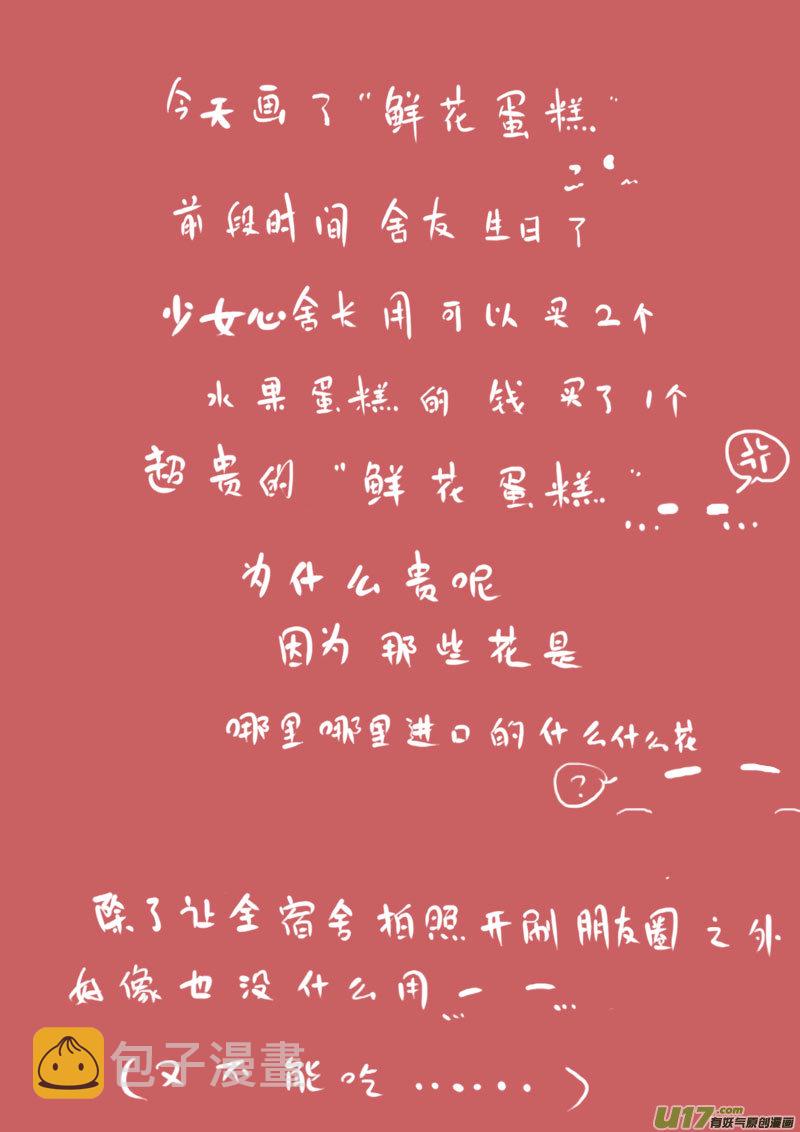 今天画了“鲜花蛋糕”
前段时间舍友生日了
少女心舍长用可以买2个
水果蛋糕的钱买了1个
超贵的“鲜花蛋糕”
为什么贵呢
因为那些花是
哪里哪里进口的什么什么花
?
除了让全宿舍拍照开刷朋友圈之外
好像也没什么用
(又不能吃......)
包子漫畫
U17.com
有妖气原创漫画